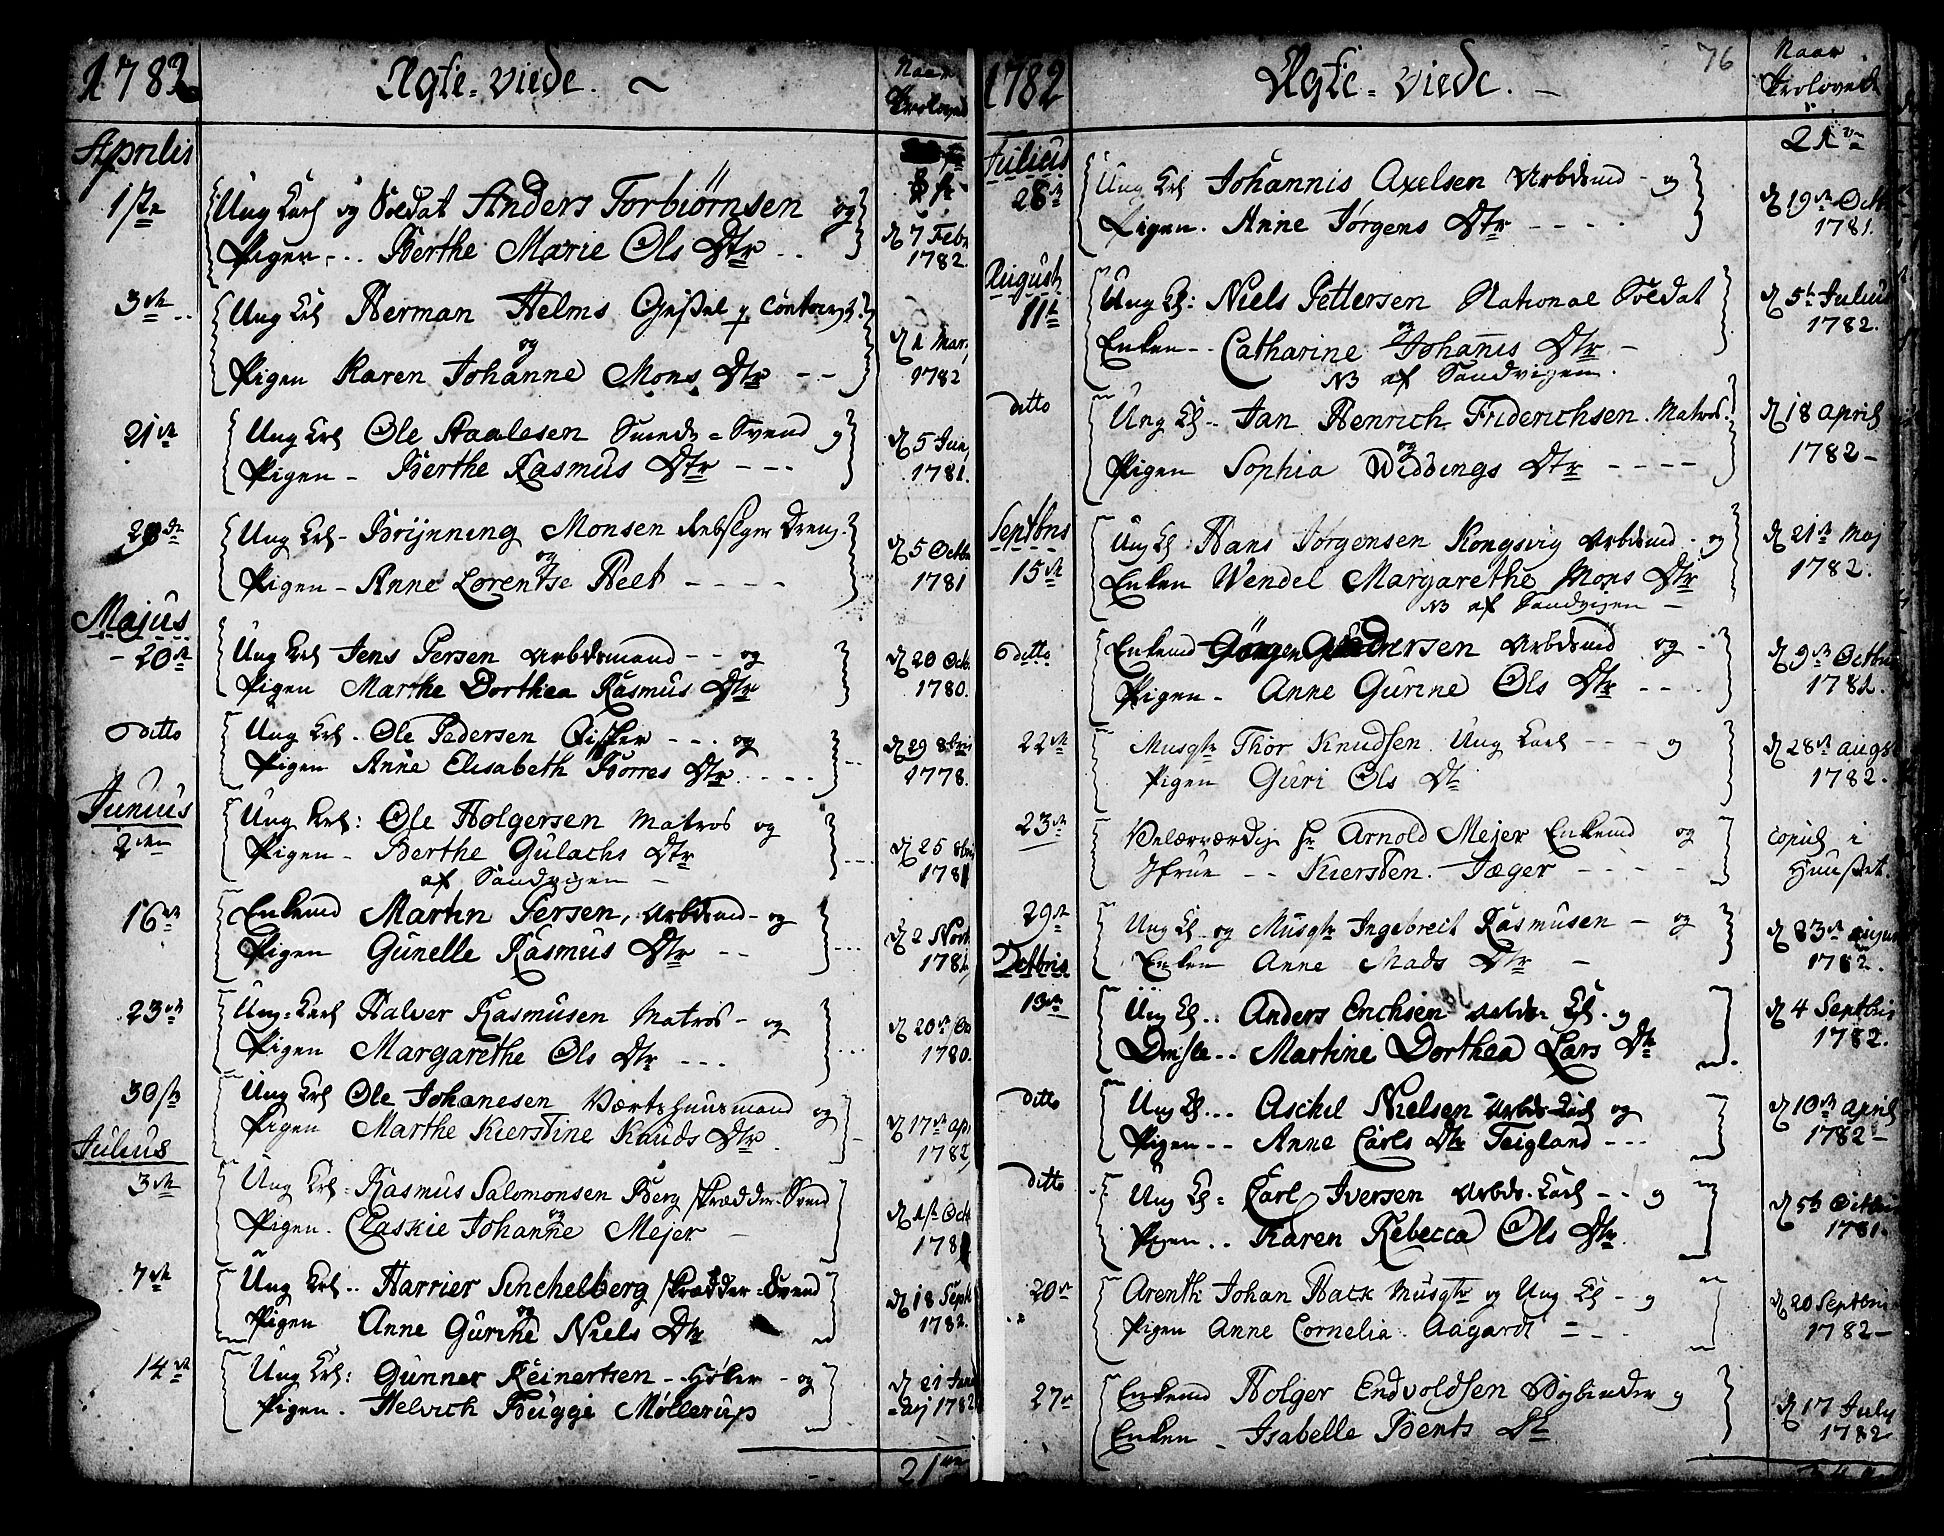 1782
Ægte-viede. ~
Naar
Troloved
Aprilis
1ste
Ung Karl og Soldat Anders Torbiørnsen og
Pigen... Berthe Marie Ols Dtr ..
d 7 Febr
1782.
3de
Ung Krl Herman Helms
og
Pigen Karen Johanne Mons Dtr --
d 1 Mar
1782
21de
Ung Krl Ole Staalesen Smede-Svend og
Pigen - Berthe Rasmus Dtr ---
d 5 Jun
1781.
29de
Ung Krl- Brynning Monsen Rebslger Dreng.
og
Pigen - Anne Lorentse Beet ----
d 5 Octb
1781
Majus
20de
Ung Krl Jens Persen Arbdsmand -- og
Pigen Marthe Dorthea Rasmus Dtr
d 20 Octb.
1780.
ditto
Ung Krl. Ole Pedersen Fisker --- og
Pigen Anne Elisabeth Borres Dtr .....
d 29 8bris
1778.
Junius
2den
Ung Krl: Ole Holgersen Matros og
Pigen - Berthe Gulachs Dtr
af Sandvigen -
d 25 8bri
1781
16de
Enkemd Martin Persen, Arbdsmd - og
Pigen Gunelle Rasmus Dtr --
d 2 Novb
1781,
23de
Ung-Karl Halver Rasmusen Matros - og
Pigen Margarethe Ols Dtr ---
d 20de
1780.
30ste
Ung Krl Ole Johanesen Værtshuusmand og
Pigen Marthe Kierstine Knuds Dtr
d 17de ap
1782,
Julius
3de
Ung Krl. Rasmus Salomonsen Berg skrædder-Svend
og
Pigen. Claskie Johanne Mejer -
d 1st Oct
1781
7de
Ung Krl.. Harrier Senchelberg skrædder-Svend
og
Pigen Anne Gurine Niels Dtr
d 18 Sept
1782.
14de
Ung Krl: Gunner Reinertsen - Høker - og
Pigen. Helvich Bugge Møllerup
d 21
1782
21
1782
Ægte-viede. -
76
Naar
Troloved
21
Julius
28de
Ung Krl Johannis Axelsen Arbdsmd - og
Pigen. Anne Jørgens Dtr ----
d 19de Oct
1781.
August
11te
Ung Kl: Niels Pettersen National Soldat
og
Enken -- Catharine Johanes Dtr -
NB af Sandvigen.
d 5t Julius
1782.
ditto
Ung Kl.. Jan Henrich Friderichsen. Matros.
og
Pigen Sophia Widdings Dtr ----
d 18 april
1782-
Septbris
15de
Ung Kl Hans Jørgensen Kongsvig Arbdsmd - og
Enken Wendel Margarethe Mons Dtr
NB af Sandvigen -
d 21de Maj
1782.
ditto
Enkemd Gørgen Andersen Arbdsmd og -
Pigen - Anne Gurine Ols Dtr ---
d 9de Octbris
1782.
22de
Musqtr Thor Knudsen. Ung Karl --- og
Pigen Guri Ols Dtr
d 28de augst
1782.
23de
Velærværdig Hr Arnold Mejer Enkemd og
Jfrue -- Kiersten. Jæger ----
copul i
Huuset.
29de
Ung Kl og Musqtr Ingebreit Rasmusen - og
Enken Anne Mads Dtr -
d 23de august
1782.
Octbris
13de
Ung Kl.. Anders Erichsen Arbds Kl. og
Martine Dorthea Lars Dtr
d 4 Septbri
1782.
ditto
Ung Kl... Aschil Nielsen Arbds-Karl og
Pigen -- Anne Carls Dtr Teigland ---
d 10de april
1782-
ditto
Ung Kl= Carl Iversen Arbds. Karl -- og
Pigen.. Karen Rebecca Ols Dtr.
d 5te Octbris
1781.
20de
Arenth Johan Hack Musqtr og Ung Kl - og
Pigen Anne Cornelia Aagardt =-
d 20 Septbri
1782-
27de
Enkemd Holger Endvoldsen Bogbinder og
Enken - Isabelle Bents Dtr
d 17 July
1782